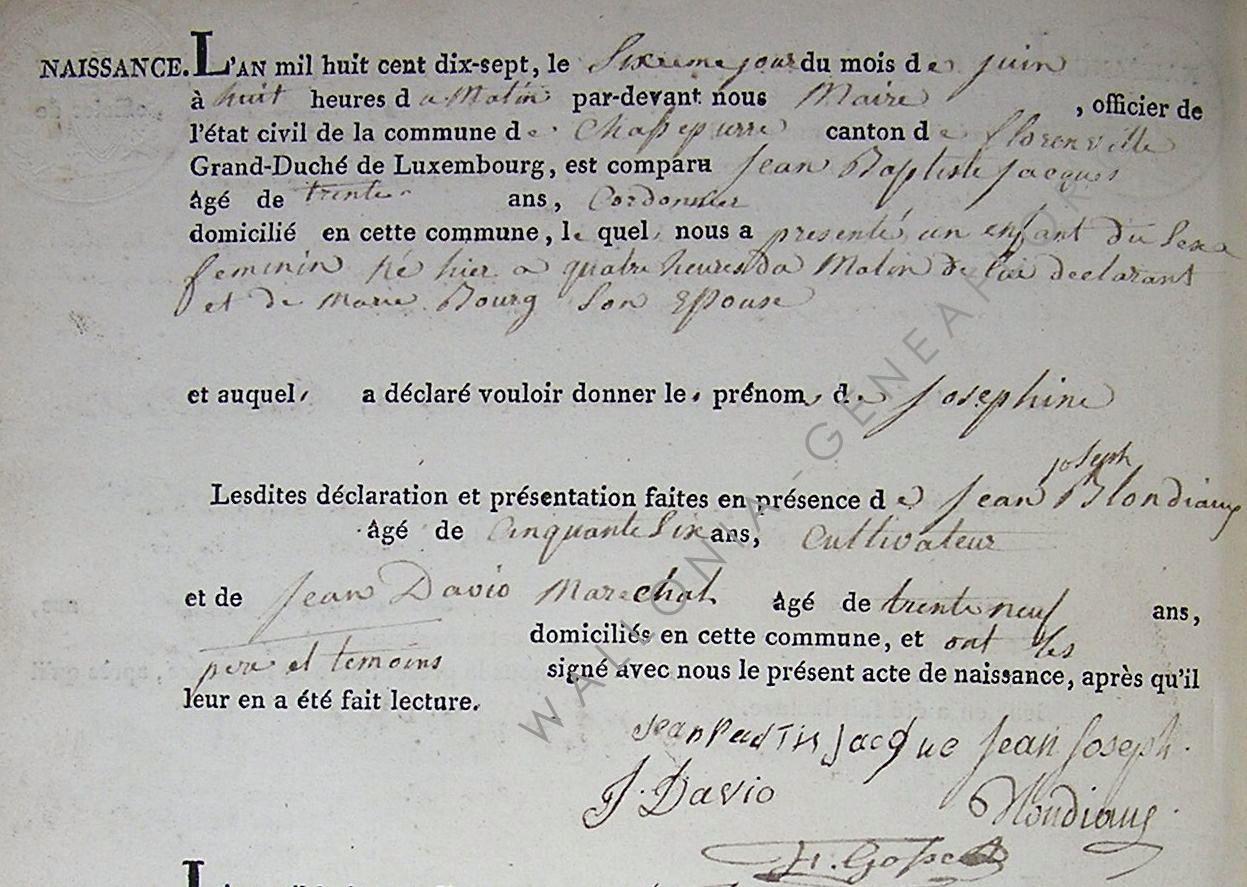 NAISSANCE. L'AN mil huit cent dix-sept, le Sixieme jour du mois de juin
à huit heures du Matin par-devant nous Maire , officier de
l'état civil de la commune de Chassepierre canton de florenville
Grand-Duché de Luxembourg, est comparu Jean Baptiste Jacques
âgé de trente ans, Cordonnier
domicilié en cette commune, le quel nous a presenté un enfant du Sexe
feminin né hier a quatre heures du Matin de lui declarant
et de Marie Bourg Son Epouse
et auquel a déclaré vouloir donner le prénom de Josephine
joseph
Lesdites déclaration et présentation faites en présence de Jean Blondiaux
âgé de Cinquante Six ans, Cultivateur
et de Jean David Marechal âgé de trente neuf ans,
domiciliés en cette commune, et ont les
pere et temoins signé avec nous le présent acte de naissance, après qu'il
leur en a été fait lecture.
Jean Jacque Jean Joseph
J. David Blondiaux
WALLONIA-GENEA